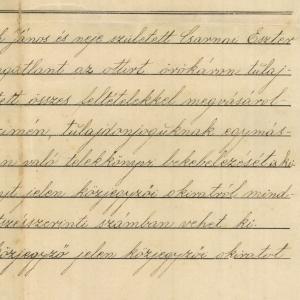 János és neje született Csarnai Eszter
ingatlant az ottirt örökáron tulaj-
tett összes feltételekkel megvásárol
címén, tulajdonjoguknak egymás-
n való telekkönyvi bekebelezését is ki
jelen közjegyzői okiratról mind-
szerinti számban vehet ki.
közjegyző jelen közjegyzői okiratot